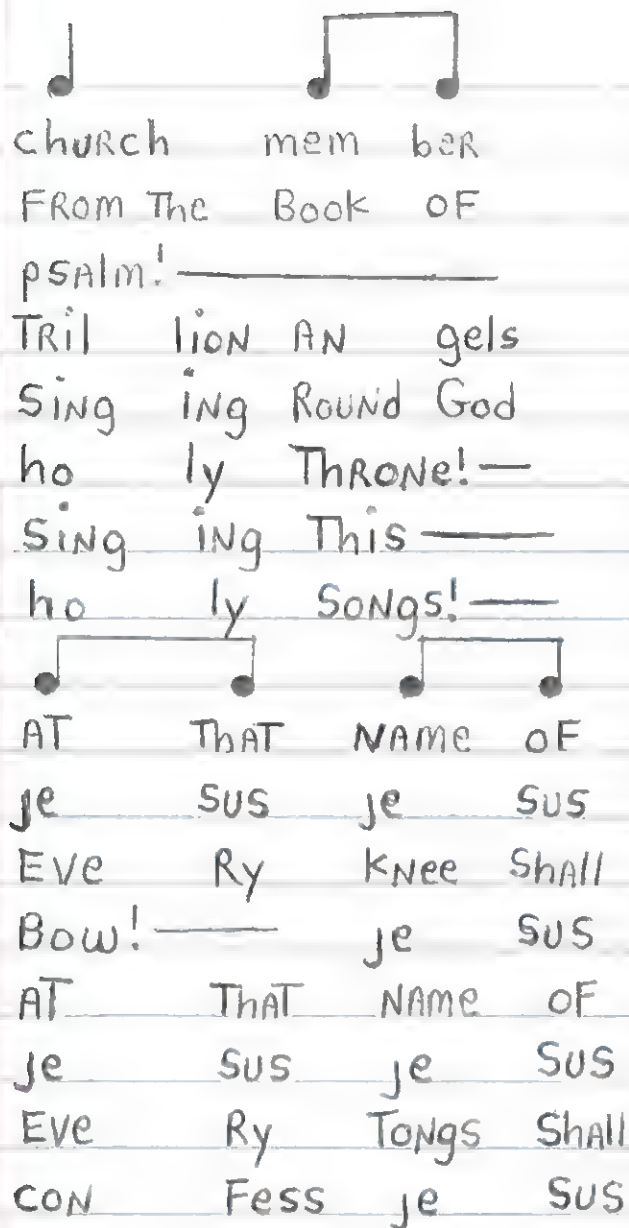 chURch mem beR
FRom The Book oF
pSAlm!
TRil lioN AN gels
SiNg iNg RouNd God
ho ly ThRoNe!
SiNg iNg This
ho ly SoNgs!
AT ThAT NAme oF
je SuS je SuS
Eve Ry KNee ShAll
Bow! je SuS
AT ThAT NAme oF
je SuS je SuS
Eve Ry ToNgs ShAll
coN Fess je SuS